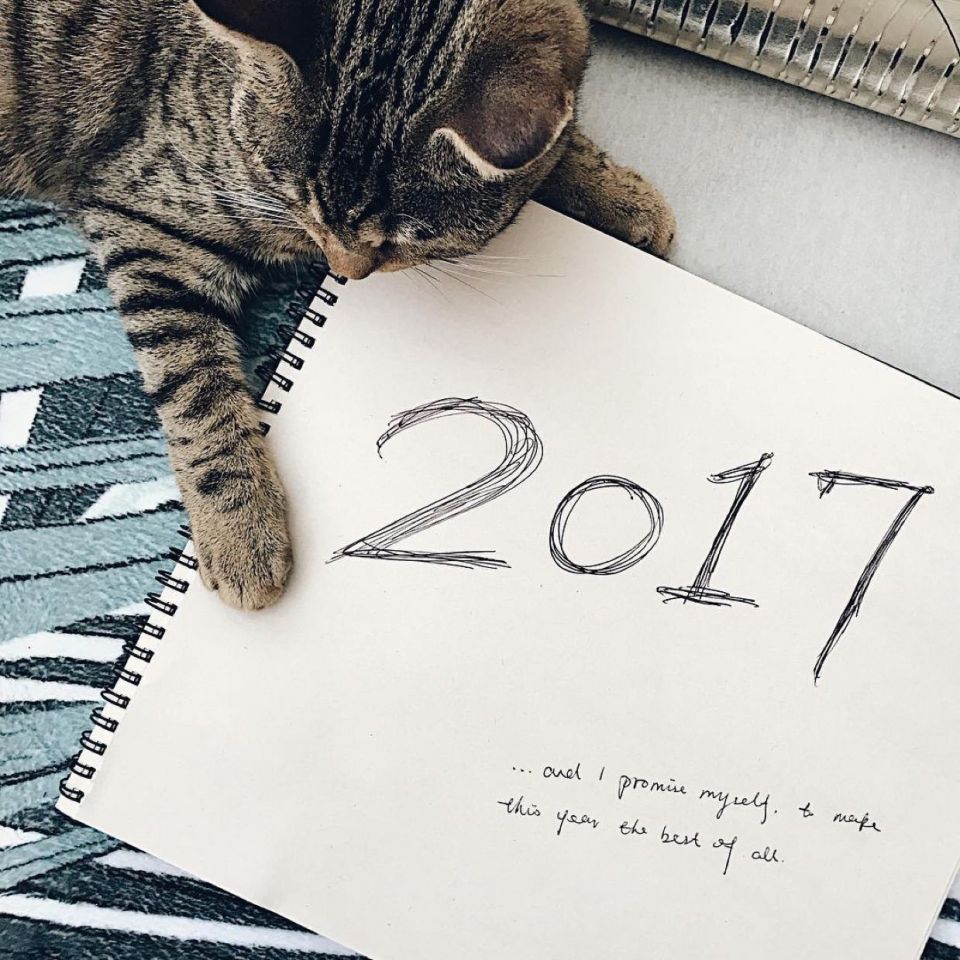 2017
... and I promise myself, to make
this year the best of all.